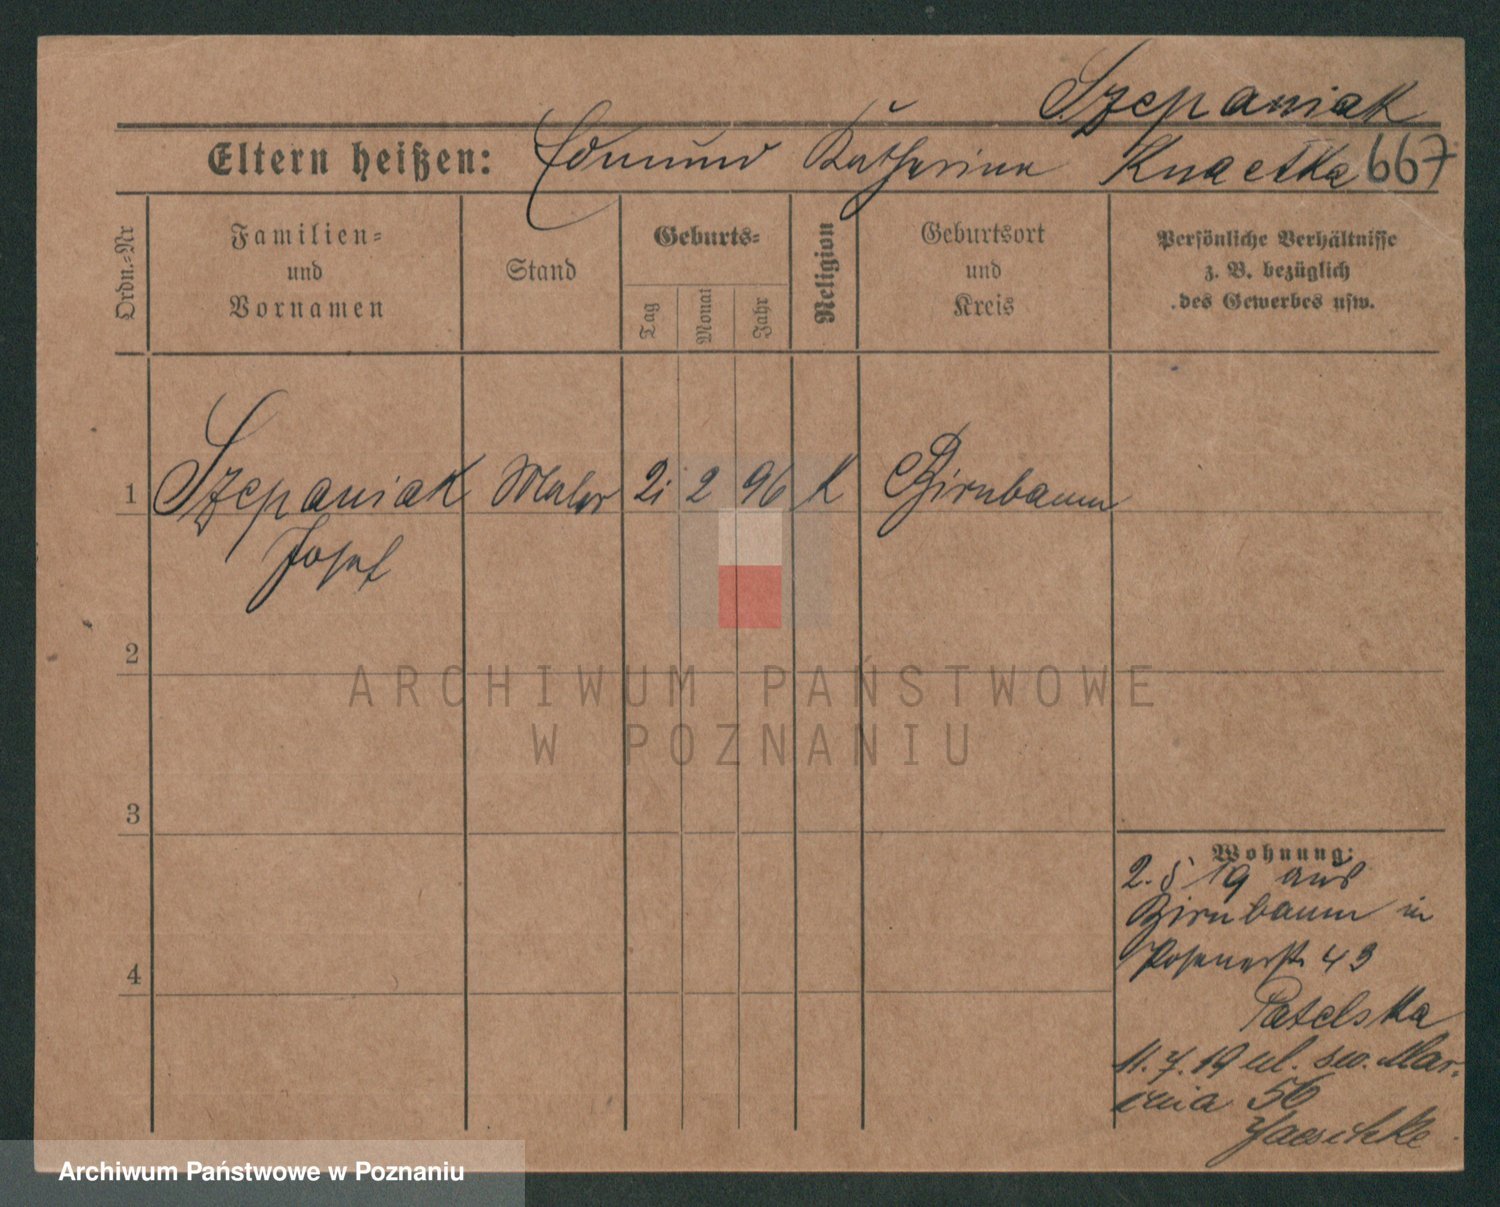 Szepaniak
Eltern heißen: Edmund Katharina Knaetka 667
Ordn.=Nr
Familien=
und
Vornamen
Stand
Geburts=
Tag
Monat
Jahr
Religion
Geburtsort
und
Kreis
Persönliche Verhältnisse
z. B. bezüglich
des Gewerbes usw.
1 Szepaniak Maler 21 2 96 K Birnbaum
Josef
2
ARCHIWUM PAŃSTWOWE
W POZNANIU
3
Wohnung:
2. 5 19 aus
Birnbaum in
Posenerstr 43
4
Patelska
11. 7. 19 ul. św. Mar-
cina 56
Jaeschke
Archiwum Państwowe w Poznaniu